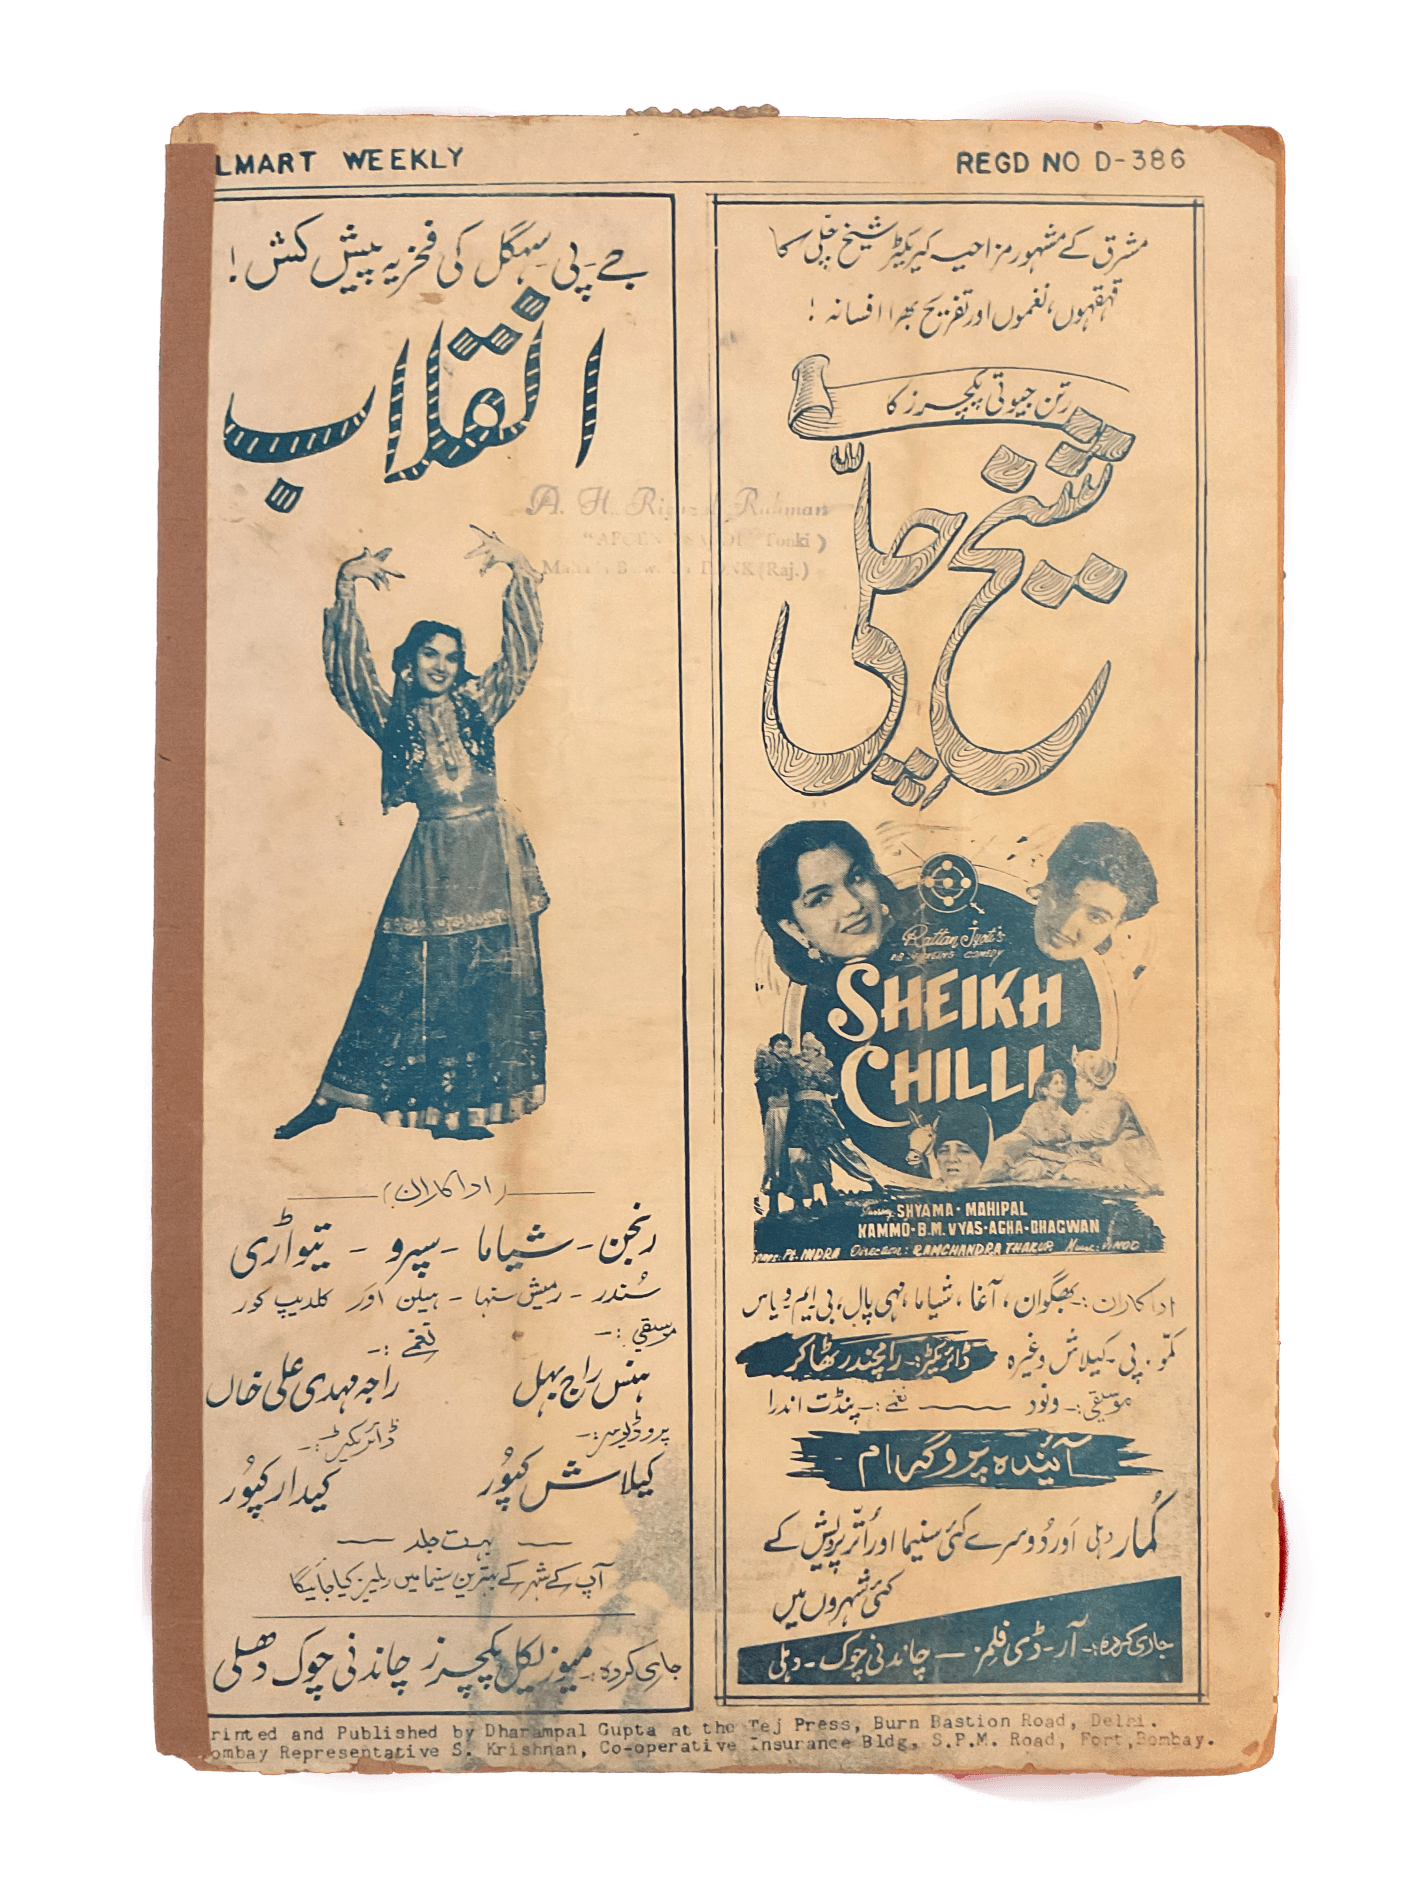 LMART WEEKLY
REGD NO D-386
جے-پی-سہگل کی فخریہ پیش کش!
انقلاب
(اداکاران)
رنجن - شیاما - سپرو - تیواڑی
سُندر - رمیش سنہا - ہیلن اور کلدیپ کور
موسیقی:- نغمے:-
ہنس راج بہل راجہ مہدی علی خاں
پروڈیوسر:- ڈائریکٹر:-
کیلاش کپُور کیدار کپُور
بہت جلد
آپ کے شہر کے بہترین سنیما میں ریلیز کیا جائیگا
جاری کردہ:- میوزیکل پکچرز چاندنی چوک دھلی
مشرق کے مشہور مزاحیہ کیریکٹر شیخ چلّی کا
قہقہوں، نغموں اور تفریح بھرا افسانہ!
رتن جیوتی پکچرز کا
شیخ چلّی
Rattan Jyoti's
COMEDY
SHEIKH
CHILLI
Starring SHYAMA · MAHIPAL
KAMMO · B.M. VYAS · AGHA · BHAGWAN
Songs: Pt. INDRA Direction: RAMCHANDRA THAKUR Music: VINOD
اداکاران:- بھگوان، آغا، شیاما، مہی پال، بی ایم ویاس
کمّو - پی - کیلاش وغیرہ ڈائریکٹر:- رامچندر ٹھاکر
موسیقی:- ونود نغمے:- پنڈت اندرا
آئندہ پروگرام
کُمار دہلی اَور دُوسرے کئی سنیما اور اُتّر پردیش کے
کئی شہروں میں
جاری کردہ:- آر-ڈی فلمز - چاندنی چوک - دہلی
A. H. Rahman
Tonki)
(Raj.)
rinted and Published by Dharampal Gupta at the Tej Press, Burn Bastion Road, Delhi.
ombay Representative S. Krishnan, Co-operative Insurance Bldg, S.P.M. Road, Fort, Bombay.